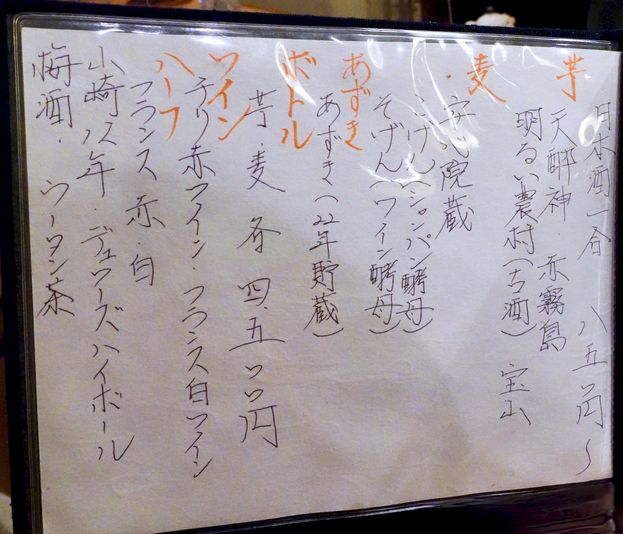 日本酒一合 八五〇円〜
芋
天酔神・赤霧島
明るい農村(古酒) 宝山
麦
安心院蔵
(シャンパン酵母)
そげん(ワイン酵母)
あずき
あずき(22年貯蔵)
ボトル
芋・麦 各 四、五〇〇円
ワイン
チリ赤ワイン・フランス白ワイン
ハーフ
フランス 赤・白
山崎12年・デュワーズハイボール
梅酒・ウーロン茶